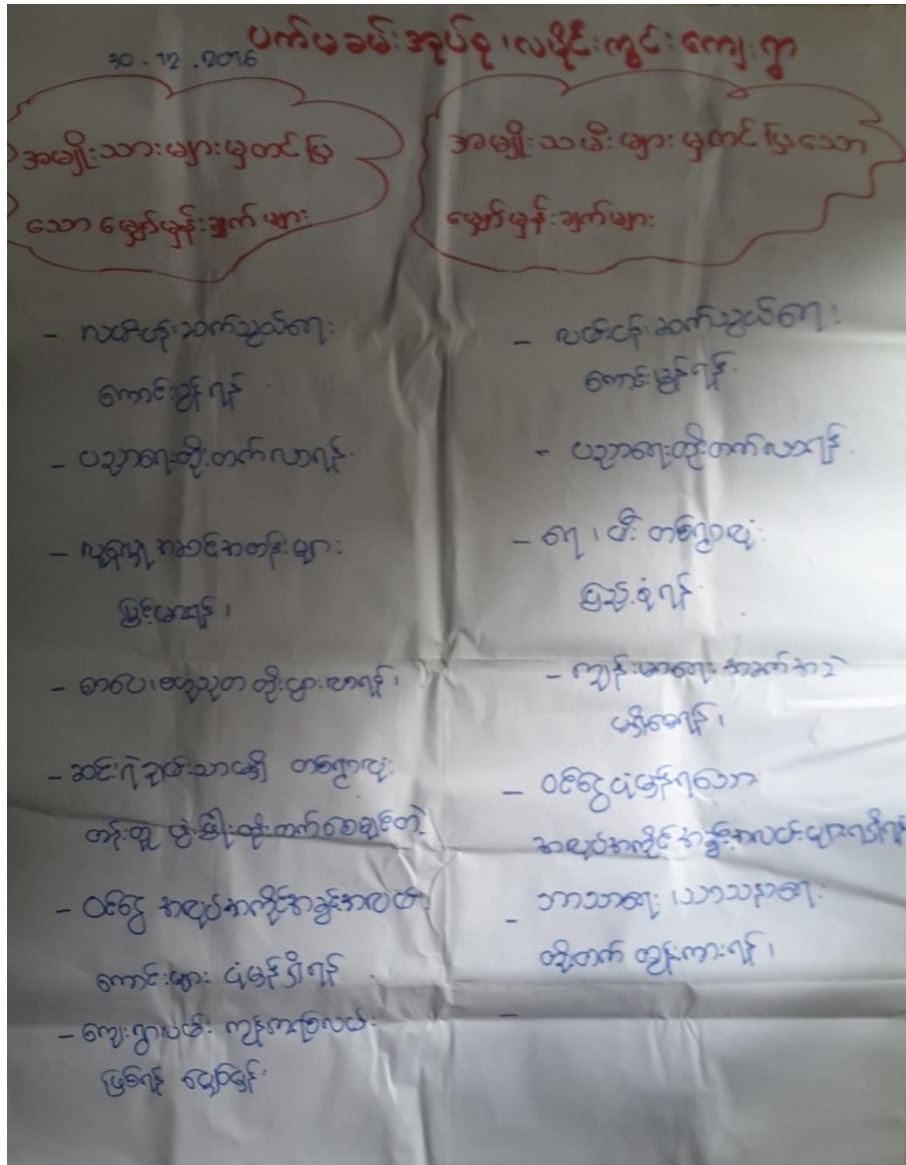 ပက်မခမ်းအုပ်စု၊လမိုင်းကွင်းကျေးရွာ
30.12.2016
အမျိုးသားများမှတင်ပြ
သော မျှော်မှန်းချက်များ
- လမ်းပန်းဆက်သွယ်ရေး
ကောင်းမွန်ရန်
- ပညာရေးတိုးတက်လာရန်
- လူနေမှုအဆင့်အတန်းများ
မြင့်မားရန်၊
- စာပေ၊ဗဟုသုတ တိုးပွားလာရန်၊
- ဆင်းရဲချမ်းသာမရှိ တစ်ရွာလုံး
တန်းတူ ဖွံ့ဖြိုးတိုးတက်စေချင်တဲ့
- ဝင်ငွေ အလုပ်အကိုင်အခွင့်အလမ်း
ကောင်းများ ပုံမှန်ရှိရန်
- ကျေးရွာလမ်း ကွန်ကရစ်လမ်း
ဖြစ်ရန် မျှော်မှန်း
အမျိုးသမီးများမှတင်ပြသော
မျှော်မှန်းချက်များ
- လမ်းပန်းဆက်သွယ်ရေး
ကောင်းမွန်ရန်
- ပညာရေးတိုးတက်လာရန်
- ရေ၊မီး တစ်ရွာလုံး
ပြည့်စုံရန်
- ကျန်းမာရေး အခက်အခဲ
မရှိစေရန်၊
- ဝင်ငွေပုံမှန်ရသော
အလုပ်အကိုင်အခွင့်အလမ်းများရရှိရန်
- ဘာသာရေး၊သာသနာရေး
တိုးတက် ထွန်းကားရန်၊
-